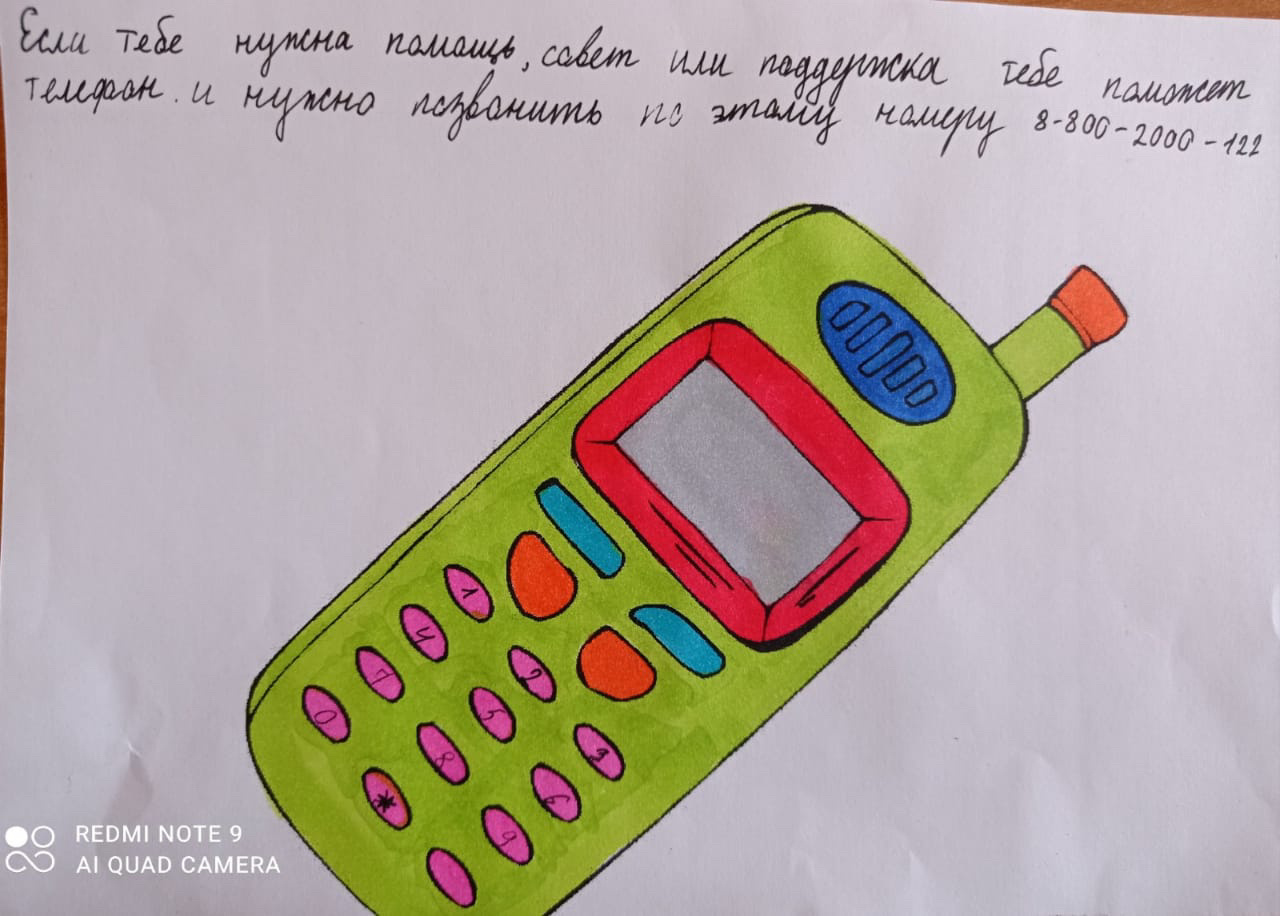 Если тебе нужна помощь, совет или поддержка тебе поможет
телефон. и нужно позвонить по этому номеру 8-800-2000-122
1
4
2
7
5
3
0
8
6
*
9
REDMI NOTE 9
AI QUAD CAMERA